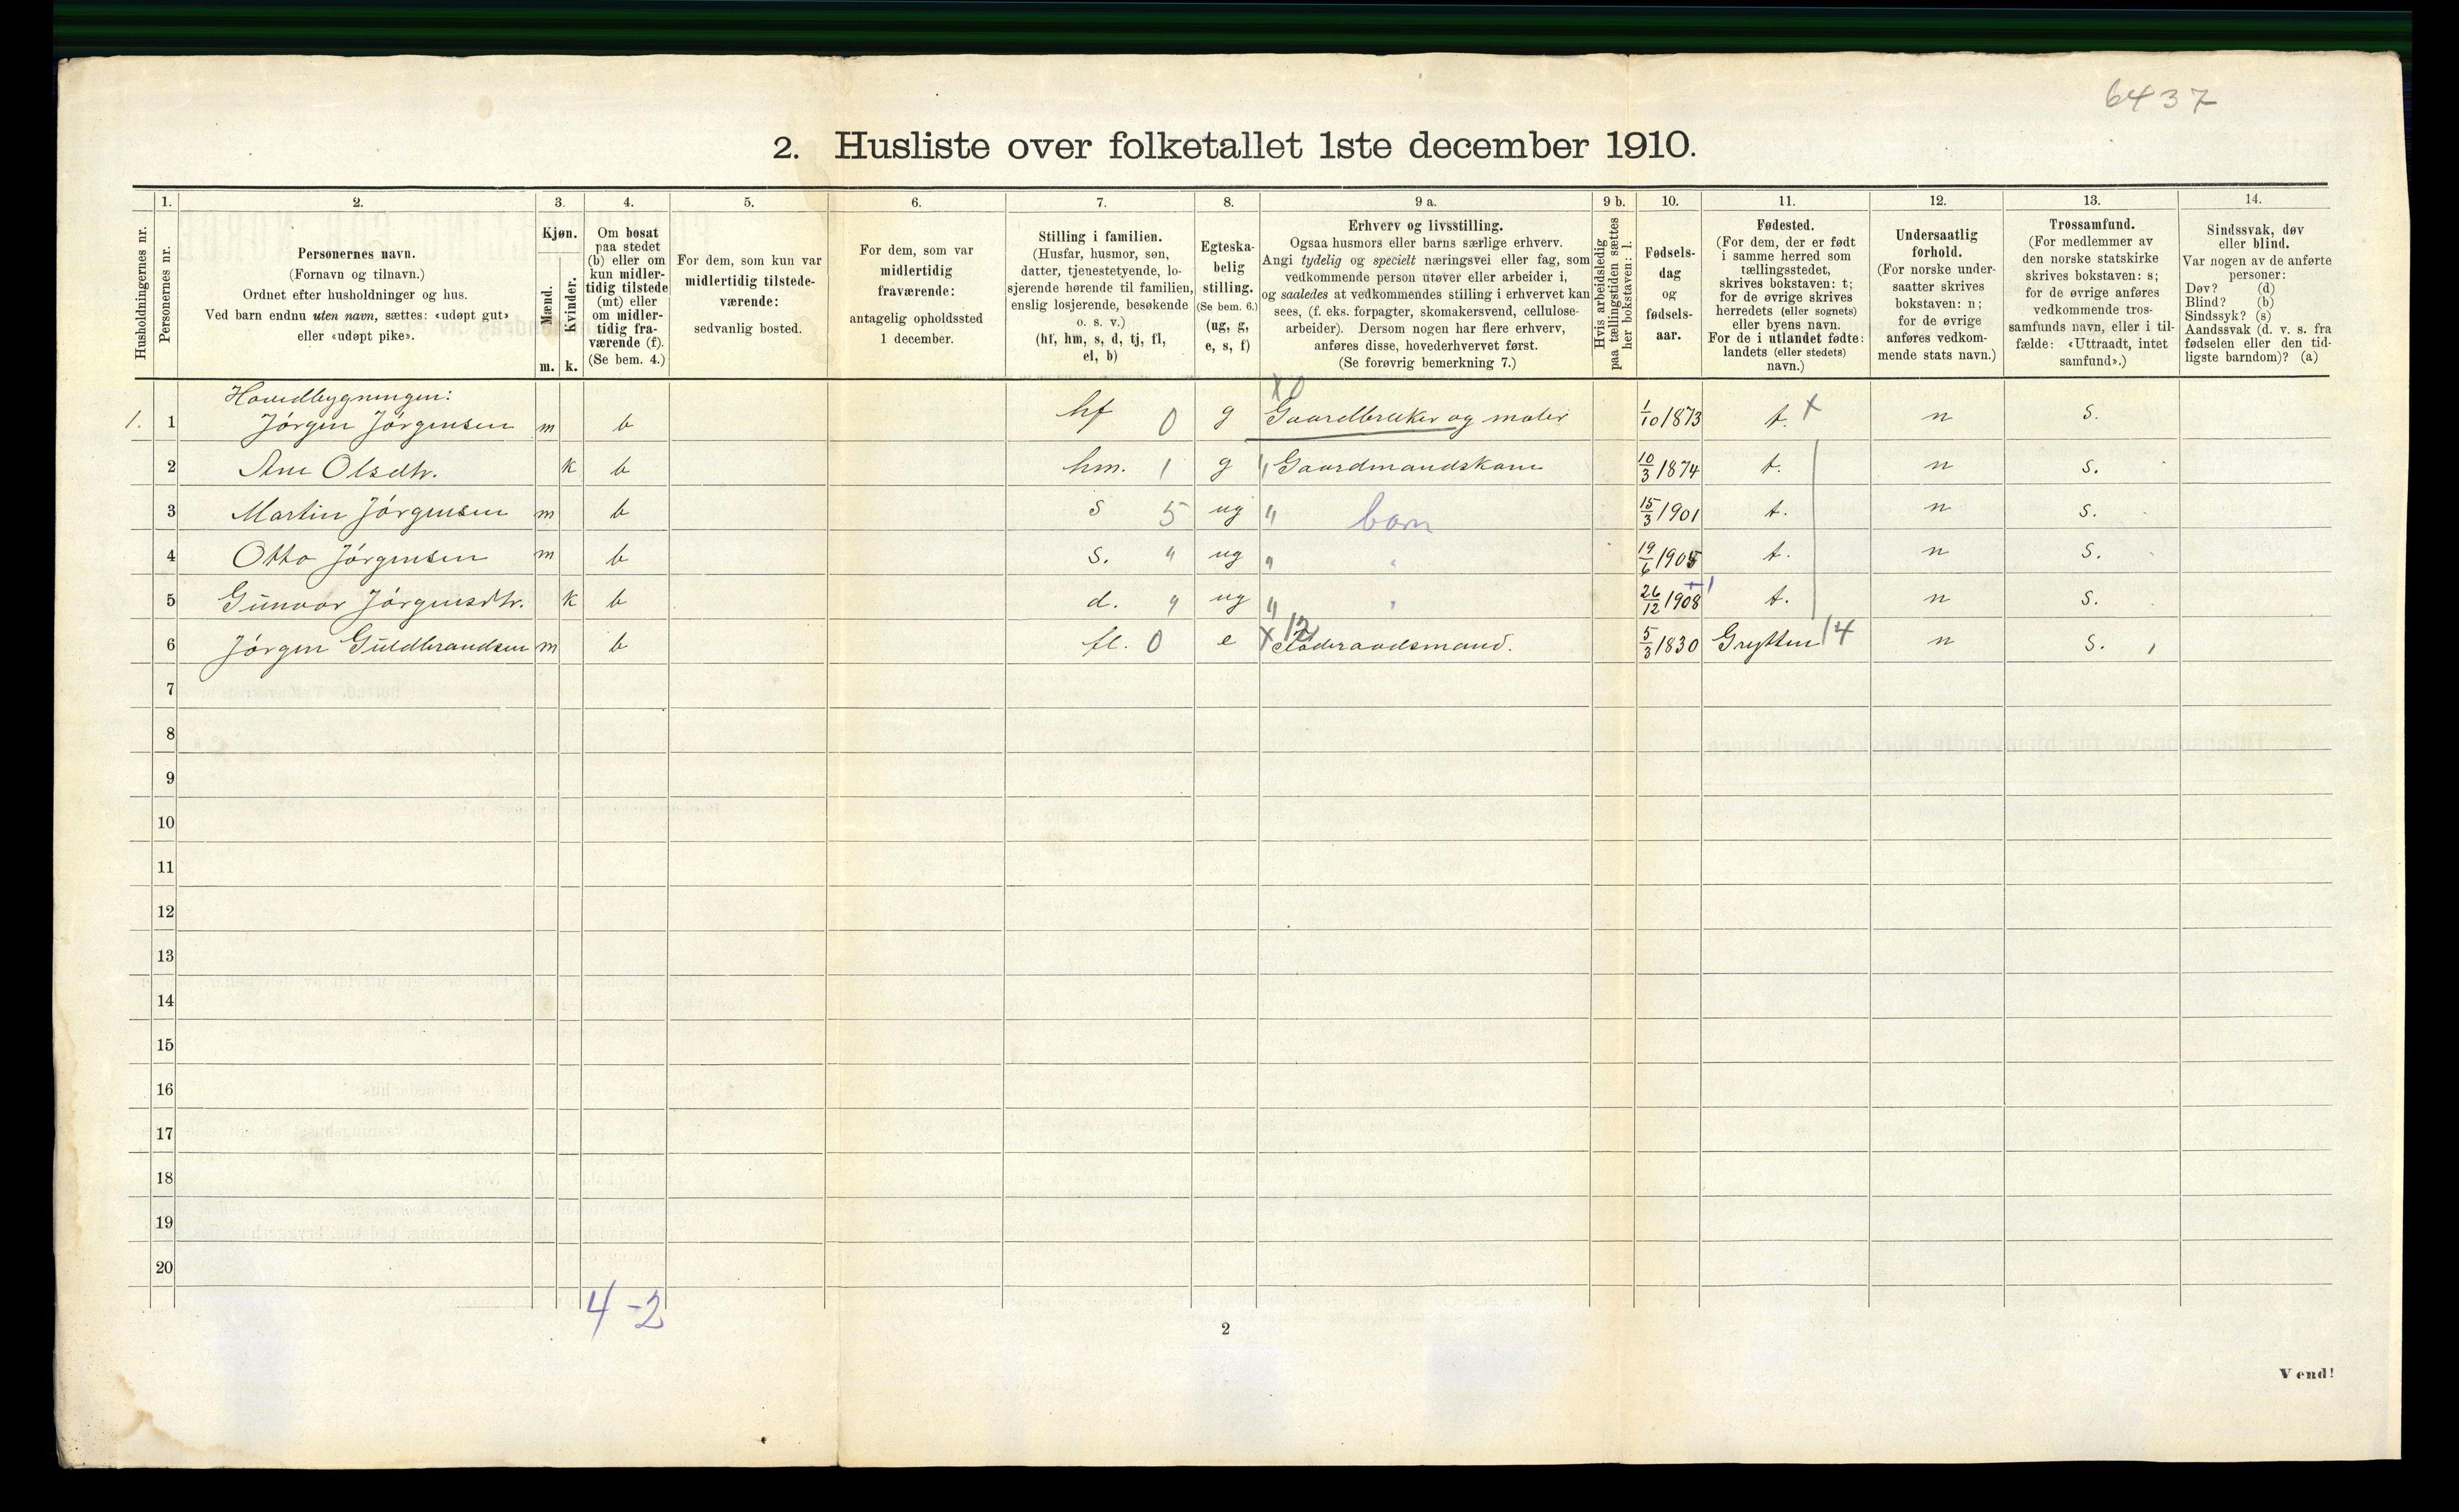 6437
2. Husliste over folketallet 1ste december 1910.
Husholdningernes nr.
1. Personernes nr.
2. Personernes navn.
(Fornavn og tilnavn.)
Ordnet efter husholdninger og hus.
Ved barn endnu uten navn, sættes: «udøpt gut»
eller «udøpt pike».
3. Kjøn.
Mænd. m.
Kvinder. k.
4. Om bosat
paa stedet
(b) eller om
kun midler-
tidig tilstede
(mt) eller
om midler-
tidig fra-
værende (f).
(Se bem. 4.)
5. For dem, som kun var
midlertidig tilstede-
værende:
sedvanlig bosted.
6. For dem, som var
midlertidig
fraværende:
antagelig opholdssted
1 december.
7. Stilling i familien.
(Husfar, husmor, søn,
datter, tjenestetyende, lo-
sjerende hørende til familien,
enslig losjerende, besøkende
o. s. v.)
(hf, hm, s, d, tj, fl,
el, b)
8. Egteska-
belig
stilling.
(Se bem. 6.)
(ug, g,
e, s, f)
9 a. Erhverv og livsstilling.
Ogsaa husmors eller barns særlige erhverv.
Angi tydelig og specielt næringsvei eller fag, som
vedkommende person utøver eller arbeider i,
og saaledes at vedkommendes stilling i erhvervet kan
sees, (f. eks. forpagter, skomakersvend, cellulose-
arbeider). Dersom nogen har flere erhverv,
anføres disse, hovederhvervet først.
(Se forøvrig bemerkning 7.)
9 b. Hvis arbeidsledig
paa tællingstiden sættes
her bokstaven: l.
10. Fødsels-
dag
og
fødsels-
aar.
11. Fødested.
(For dem, der er født
i samme herred som
tællingsstedet,
skrives bokstaven: t;
for de øvrige skrives
herredets (eller sognets)
eller byens navn.
For de i utlandet fødte:
landets (eller stedets)
navn.)
12. Undersaatlig
forhold.
(For norske under-
saatter skrives
bokstaven: n;
for de øvrige
anføres vedkom-
mende stats navn.)
13. Trossamfund.
(For medlemmer av
den norske statskirke
skrives bokstaven: s;
for de øvrige anføres
vedkommende tros-
samfunds navn, eller i til-
fælde: «Uttraadt, intet
samfund».)
14. Sindssvak, døv
eller blind.
Var nogen av de anførte
personer:
Døv? (d)
Blind? (b)
Sindssyk? (s)
Aandssvak (d. v. s. fra
fødselen eller den tid-
ligste barndom)? (a)
Hovedbygningen:
1. 1 Jørgen Jørgensen m b hf 0 g X0 Gaardbruker og maler 1/10 1873 t. X n s.
2 Ane Olsdtr. k b hm. 1 g " Gaardmandskone 10/3 1874 t. n s.
3 Martin Jørgensen m b s 5 ug " barn 15/3 1901 t. n s.
4 Otto Jørgensen m b s. " ug " " 19/6 1905 t. n s.
5 Gunvor Jørgensdtr. k b d. " ug " " 26/12 1908 t. n s.
6 Jørgen Guldbrandsen m b fl. 0 e X 12 Føderaadsmand. 5/3 1830 Grytten 14 n s.
7
8
9
10
11
12
13
14
15
16
17
18
19
20
4 - 2
2
Vend!